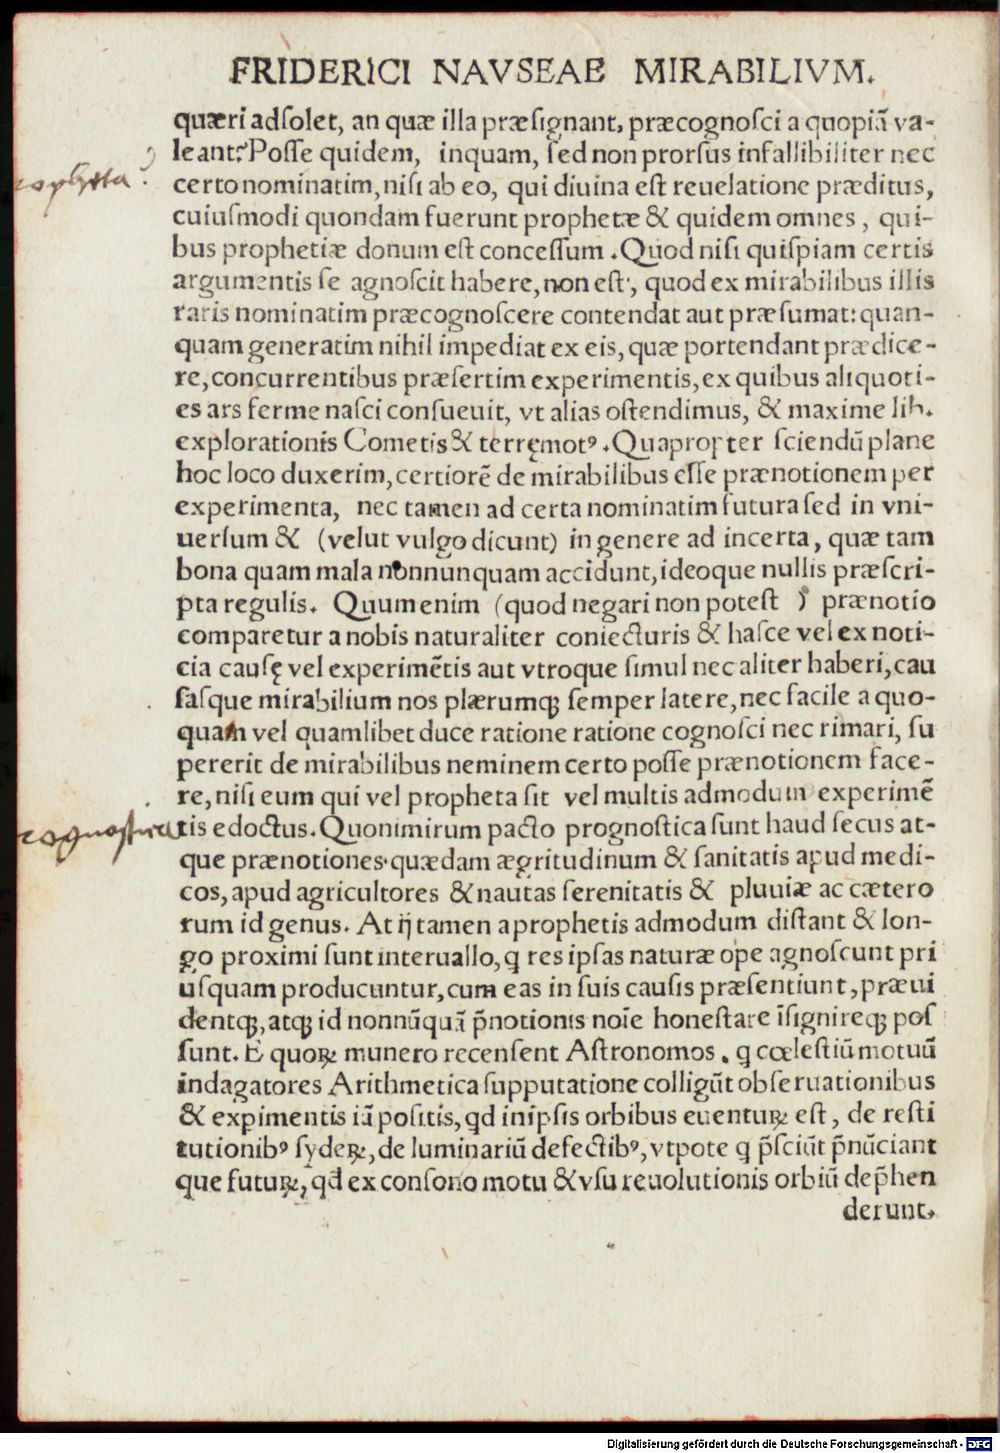 FRIDERICI NAVSEAE MIRABILIVM.
quæri adſolet, an quæ illa præſignant, præcognoſci a quopiã va-
leant? Poſſe quidem, inquam, ſed non prorſus infallibiliter nec
certo nominatim, niſi ab eo, qui diuina eſt reuelatione præditus,
cuiuſmodi quondam fuerunt prophetæ & quidem omnes, qui-
bus prophetiæ donum eſt conceſſum. Quod niſi quiſpiam certis
argumentis ſe agnoſcit habere, non eſt, quod ex mirabilibus illis
raris nominatim præcognoſcere contendat aut præſumat: quan-
quam generatim nihil impediat ex eis, quæ portendant prædice-
re, concurrentibus præſertim experimentis, ex quibus aliquoti-
es ars ferme naſci conſueuit, vt alias oſtendimus, & maxime lib.
explorationis Cometis & terręmotꝰ. Quapropter ſciendũ plane
hoc loco duxerim, certiorẽ de mirabilibus eſſe prænotionem per
experimenta, nec tamen ad certa nominatim futura ſed in vni-
uerſum & (velut vulgo dicunt) in genere ad incerta, quæ tam
bona quam mala nonnunquam accidunt, ideoque nullis præſcri-
pta regulis. Quum enim (quod negari non poteſt ) prænotio
comparetur a nobis naturaliter coniecturis & haſce vel ex noti-
cia cauſę vel experimẽtis aut vtroque ſimul nec aliter haberi, cau
ſaſque mirabilium nos plærumqꝫ ſemper latere, nec facile a quo-
quam vel quamlibet duce ratione ratione cognoſci nec rimari, ſu
pererit de mirabilibus neminem certo poſſe prænotionem face-
re, niſi eum qui vel propheta ſit vel multis admodum experimẽ
tis edoctus. Quonimirum pacto prognoſtica ſunt haud ſecus at-
que prænotiones quædam ægritudinum & ſanitatis apud medi-
cos, apud agricultores & nautas ſerenitatis & pluuiæ ac cætero
rum id genus. At ij tamen a prophetis admodum diſtant & lon-
go proximi ſunt interuallo, q res ipſas naturæ ope agnoſcunt pri
uſquam producuntur, cum eas in ſuis cauſis præſentiunt, præui
dentqꝫ, atqꝫ id nonnũquã p̃notionis noĩe honeſtare ĩſignireqꝫ poſ
ſunt. E quoꝝ munero recenſent Aſtronomos, q cœleſtiũ motuũ
indagatores Arithmetica ſupputatione colligũt obſeruationibus
& expimentis iã poſitis, qd in ipſis orbibus euentuꝝ eſt, de reſti
tutionibꝰ ſydeꝝ, de luminariũ defectibꝰ, vtpote q p̃ſciũt p̃nũciant
que futuꝝ, qd ex conſono motu & vſu reuolutionis orbiũ dep̃hen
derunt.
Digitalisierung gefördert durch die Deutsche Forschungsgemeinschaft - DFG